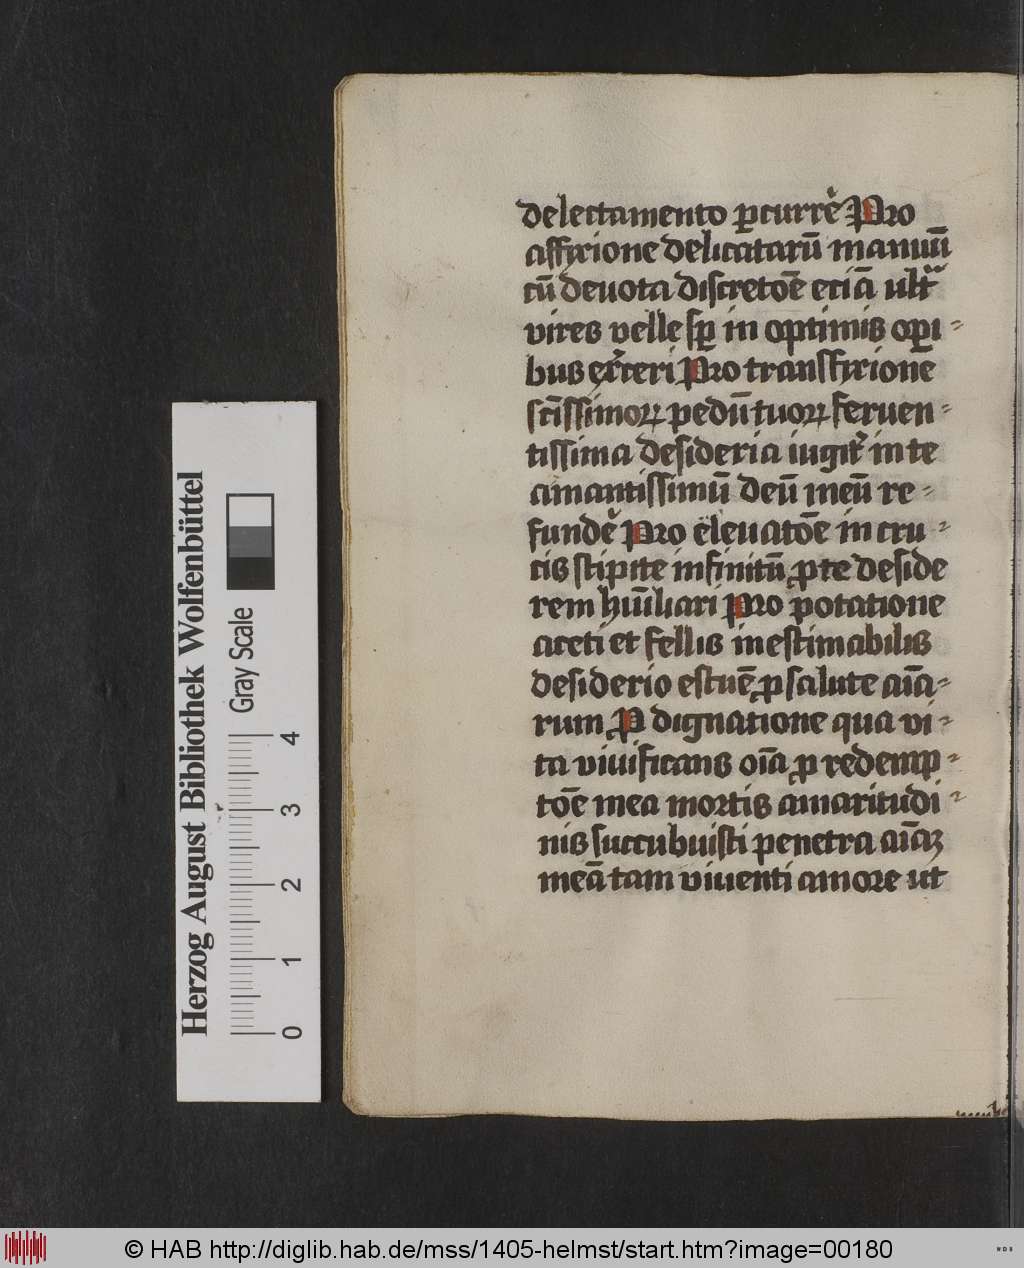 delectamento ꝑcurrē Pro
affixione delicatarū manuū
cū deuota discretōe eciā ultͣ
vires velle sꝑ in optimis oꝑi-
bus ex̾ceri Pro transfixione
sc̄issimoꝝ pedū tuoꝝ feruen-
tissima desideria iugit̾ in te
amantissimū deū meū re-
fundē Pro eleuatōe in cru-
cis stipite infinitū ꝓ te deside
rem hūiliari Pro potatione
aceti et fellis inestimabilis
desiderio estuē ꝓ salute aīa-
rum Ꝓ dignatione qua vi-
ta viuificans oīa ꝓ redemp-
tōe mea mortis amaritudi-
nis succubuisti penetra aīaꝫ
meā tam viuenti amore ut
Herzog August Bibliothek Wolfenbüttel
Gray Scale
0 1 2 3 4
© HAB http://diglib.hab.de/mss/1405-helmst/start.htm?image=00180